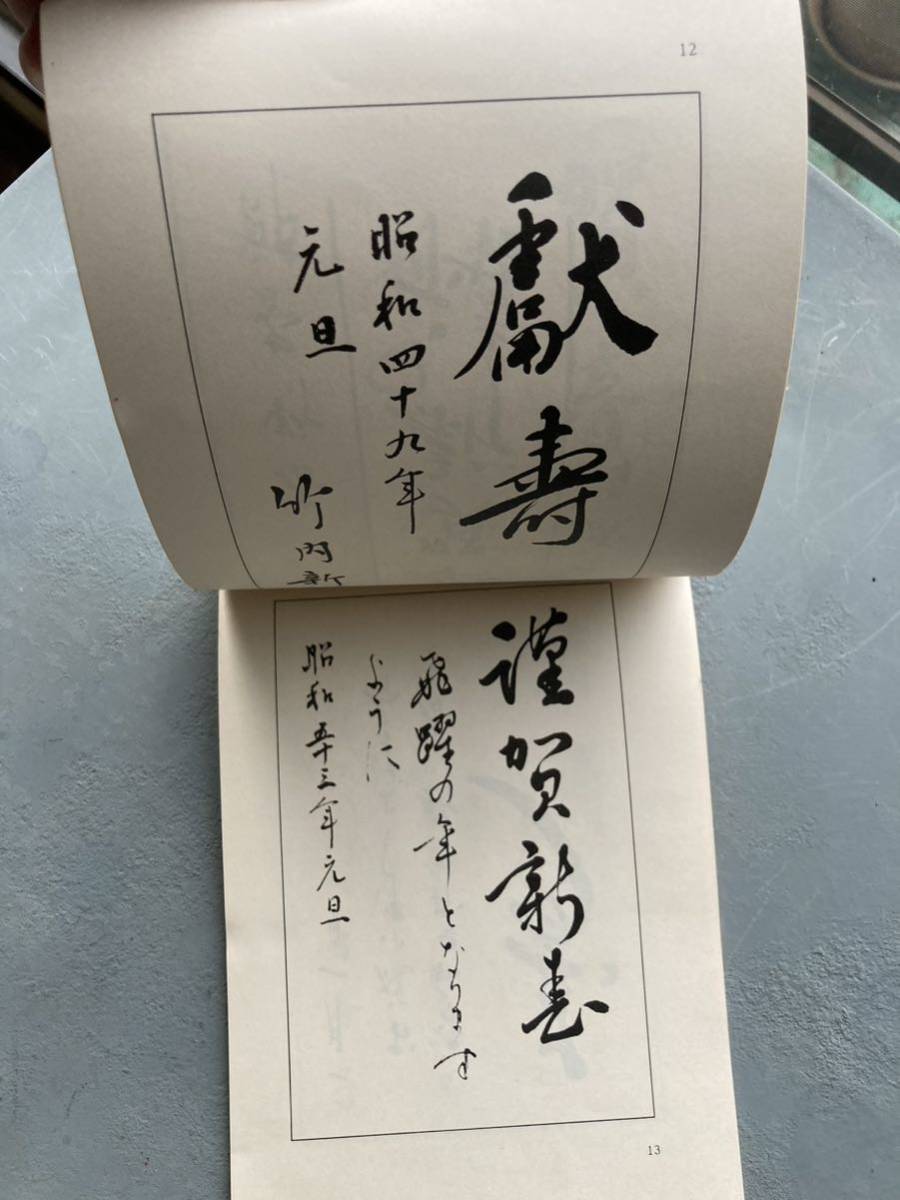 12
獻壽
昭和四十九年
元旦
竹内新
謹賀新春
飛躍の年となります
ように
昭和五十三年元旦
13